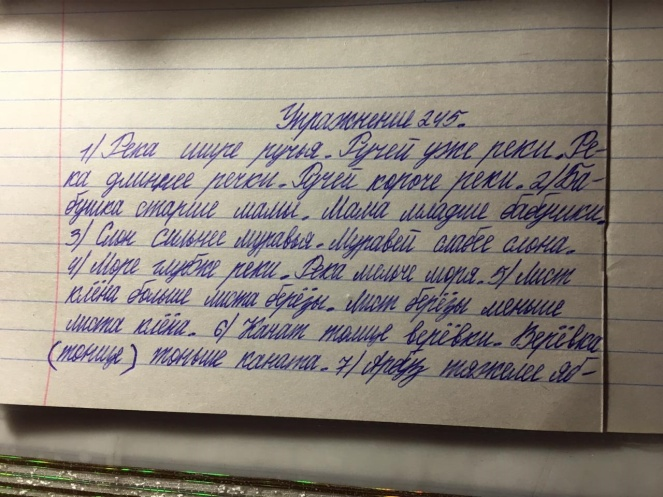 Упражнение 245.
1) Река шире ручья. Ручей уже реки. Ре-
ка длиннее речки. Ручей короче реки. 2) Ба-
бушка старше мамы. Мама младше бабушки.
3) Слон сильнее муравья. Муравей слабее слона.
4) Море глубже реки. Река мельче моря. 5) Лист
клёна больше листа берёзы. Лист берёзы меньше
листа клёна. 6) Канат толще верёвки. Верёвка
(тонще) тоньше каната. 7) Арбуз тяжелее яб-